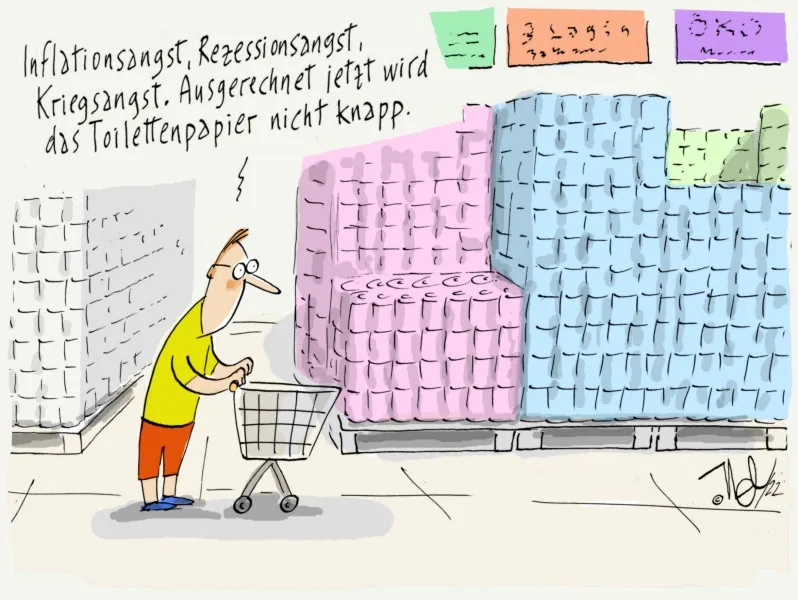 Inflationsangst, Rezessionsangst,
Kriegsangst. Ausgerechnet jetzt wird
das Toilettenpapier nicht knapp.
3 Lagig
ÖKO